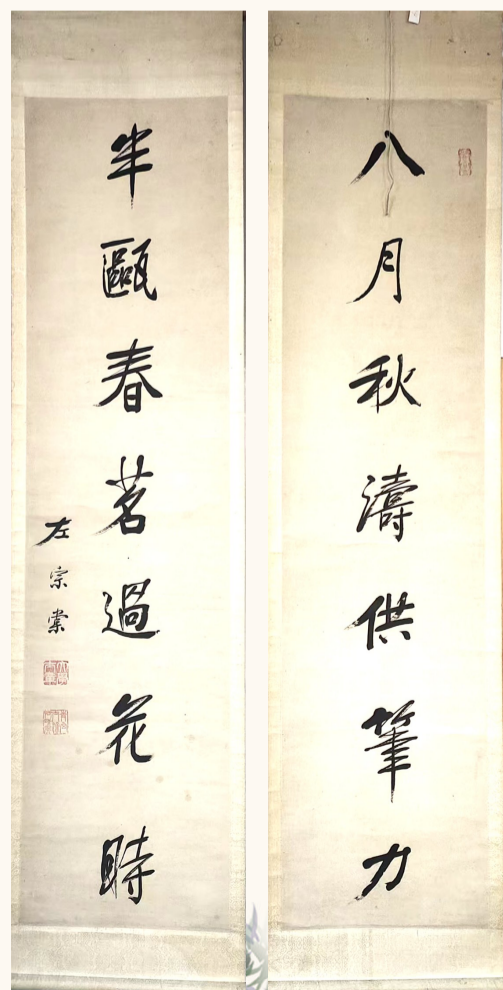 八月秋濤供筆力
半甌春茗過花時
左宗棠